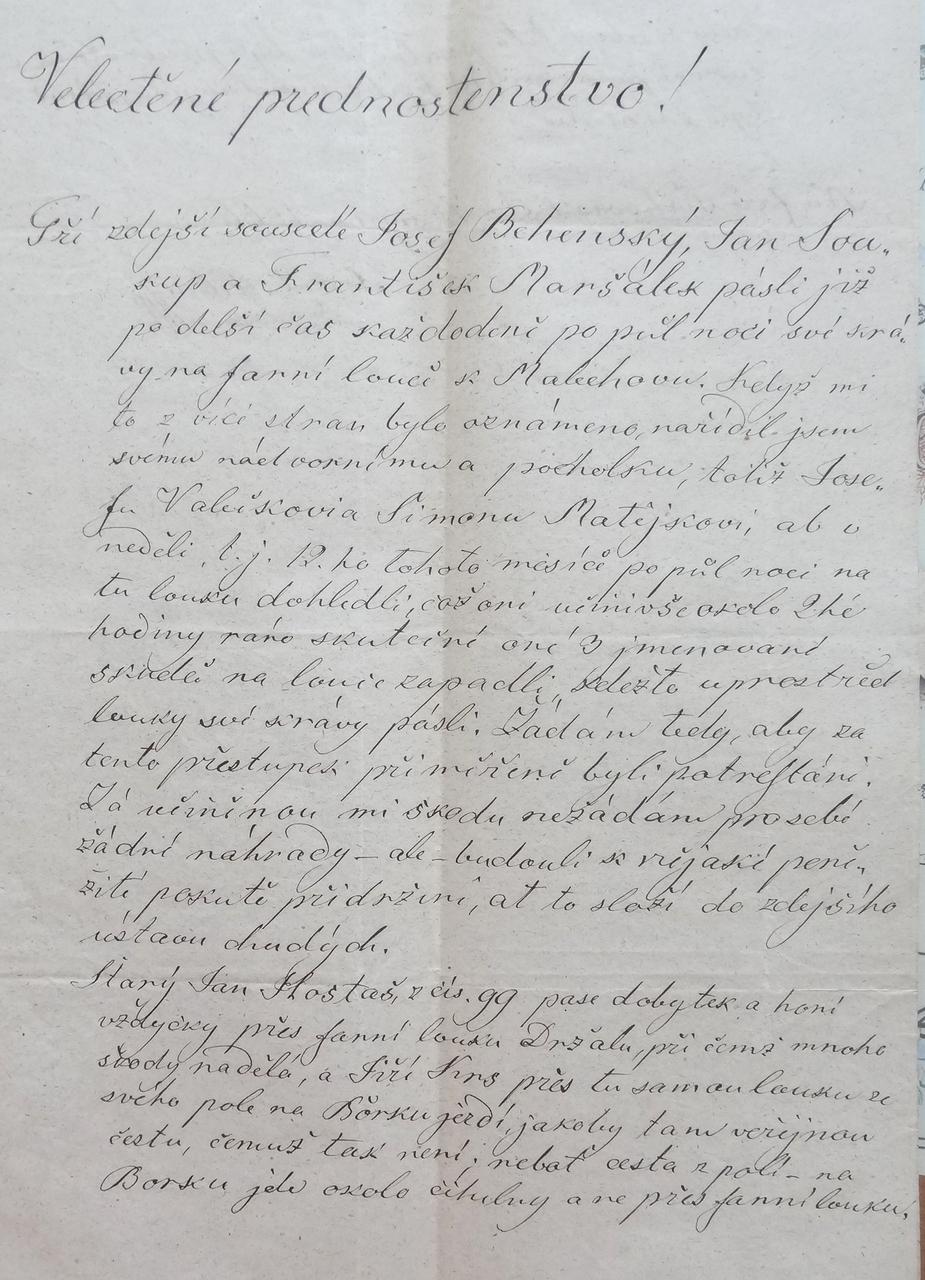 Velectěné prednostenstvo!
Tří zdejší sousedé Josef Behenský, Jan Sou-
kup a František Maršálek pásli již
po delší čas každodeně po půl noci své krá-
vy na farní louce k Malechovu. Když mi
to z více stran bylo oznámeno, nařídil jsem
svému nádvornímu a pocholku, totiž Jose-
fu Valeškovi a Simonu Matějskovi, ab v
neděli, t. j. 12. ho tohoto měsíce po půl noci na
tu louku dohledli, což oni učinivše okolo 2hé
hodiny ráno skutečně oné 3 jmenované
na louce zapadli, kdežto uprostřed
louky své krávy pásli. Žádám tedy, aby za
tento přestupek přiměřeně byli potrestáni.
Za učiněnou mi škodu nežádám pro sebe
žádné náhrady – ale – budouli k nějaké peně-
žité pokutě přidrženi, ať to složí do zdejšího
ústavu chudých.
Starý Jan Hostaš, z čís. 99 pase dobytek a honí
vždycky přes farní louku Držalu, při čemž mnoho
škody nadělá, a Jiří Krs přes tu samou louku ze
svého pole na Bořku jezdí, jakoby tam veřejnou
cestu, čemuž tak není; nebať cesta z polí – na
Borsku jde okolo cihelny a ne přes farní louku.